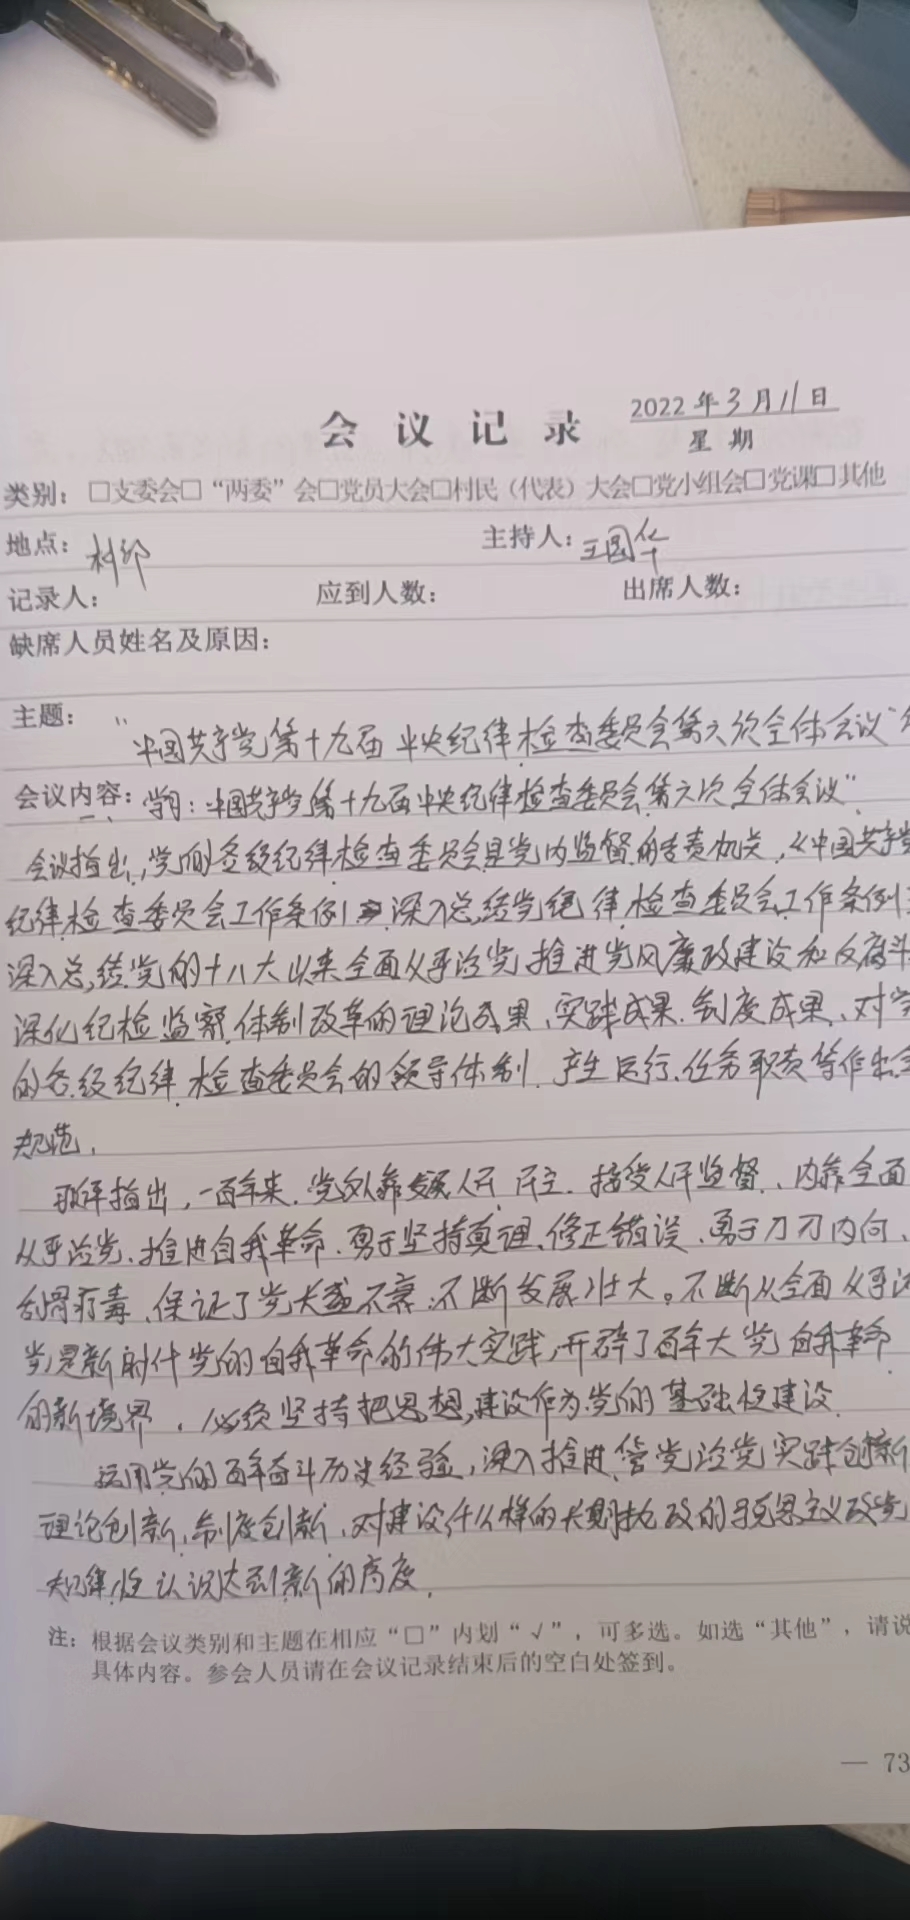 会议记录 2022年3月11日
星期
类别：□支委会□“两委”会□党员大会□村民（代表）大会□党小组会□党课□其他
地点：村部 主持人：王国华
记录人： 应到人数： 出席人数：
缺席人员姓名及原因：
主题：“中国共产党第十九届中央纪律检查委员会第六次全体会议”
会议内容：一、学习：中国共产党第十九届中央纪律检查委员会第六次全体会议”
会议指出，党的各级纪律检查委员会是党内监督的专责机关，《中国共产党
纪律检查委员会工作条例 深入总结党纪律检查委员会工作条例
深入总结党的十八大以来全面从严治党、推进党风廉政建设和反腐斗
深化纪检监察体制改革的理论成果、实践成果、制度成果、对党
的各级纪律检查委员会的领导体制、产生运行、任务职责等作出全
规范、
指出，一百年来、党外靠发展人民民主、接受人民监督、内靠全面
从严治党、推进自我革命、勇于坚持真理、修正错误、勇于刀刃内向、
刮骨疗毒、保证了党长盛不衰、不断发展壮大。不断从全面从严治
党是新时代党的自我革命的伟大实践，开辟了百年大党自我革命
的新境界、必须坚持把思想建设作为党的基础性建设
运用党的百年奋斗历史经验，深入推进管党治党实践创新
理论创新、制度创新、对建设什么样的长期执政的马克思主义政党
规律性认识达到新的高度、
注：根据会议类别和主题在相应“□”内划“√”，可多选。如选“其他”，请说
具体内容。参会人员请在会议记录结束后的空白处签到。
— 73